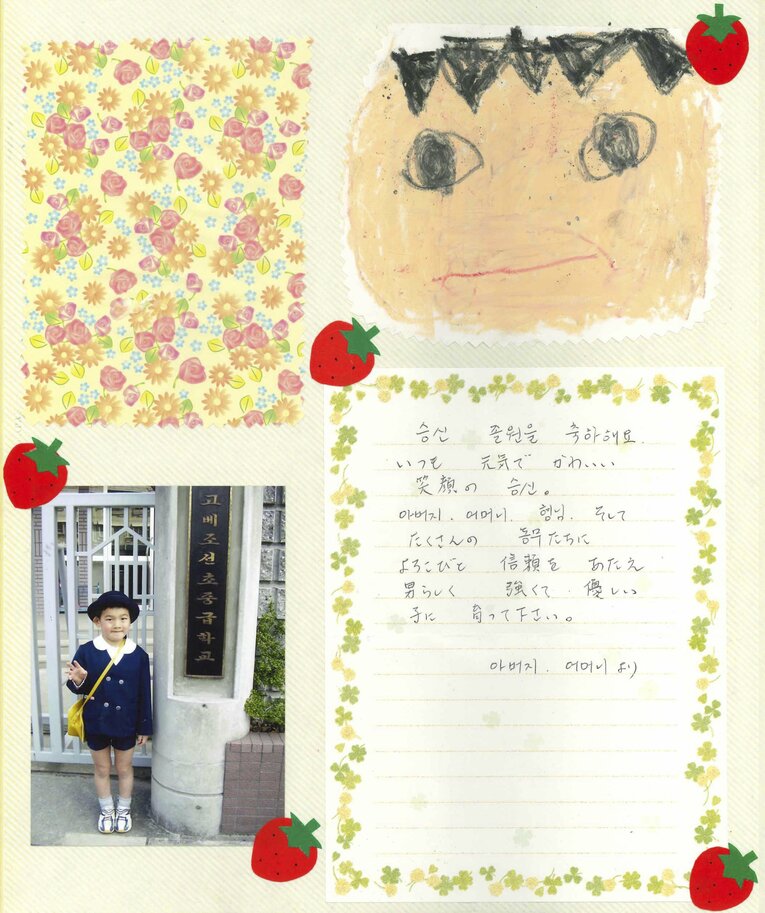 고베조선초중급학교
승신 졸원을 축하해요.
いつも 元気で かわいい
笑顔の 승신。
아버지. 어머니. 형님. そして
たくさんの 동무たちに
よろこびと 信頼を あたえ
男らしく 強くて 優しい
子に 育って下さい。
아버지. 어머니 より